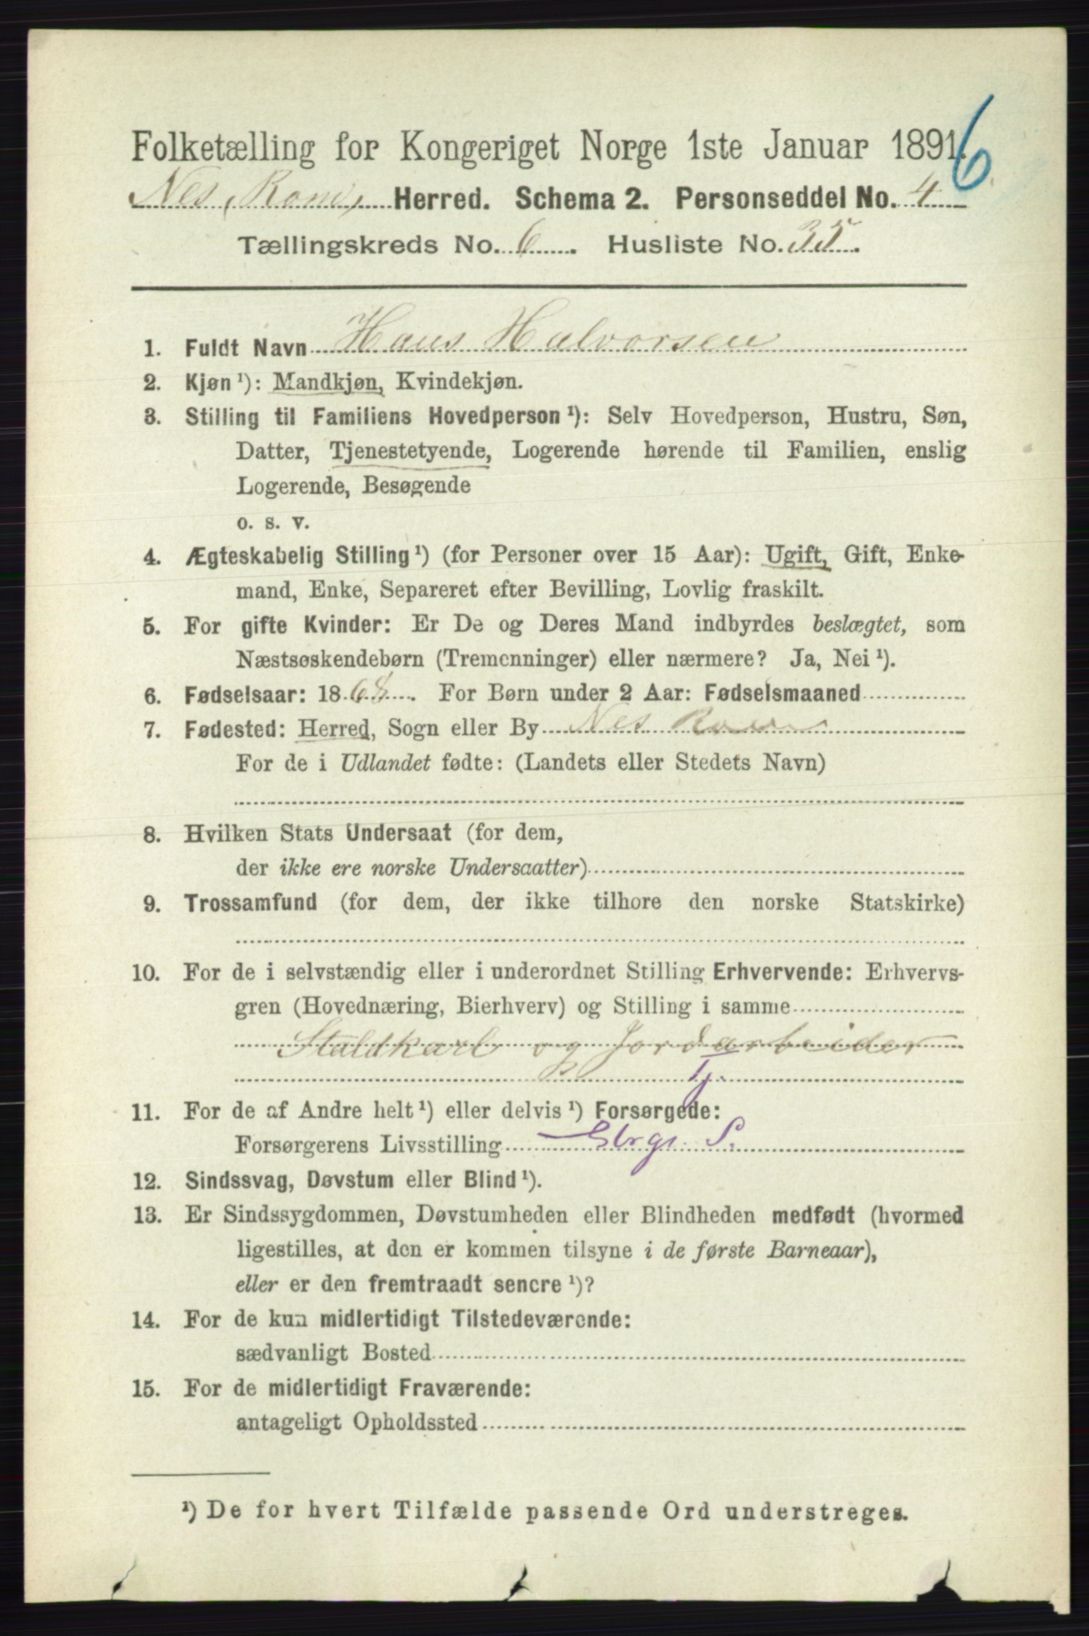 Folketælling for Kongeriget Norge 1ste Januar 1891.
6
Nes, Rom, Herred. Schema 2. Personseddel No. 4
Tællingskreds No. 6. Husliste No. 35.
1. Fuldt Navn Hans Halvorsen
2. Kjøn ¹): Mandkjøn, Kvindekjøn.
3. Stilling til Familiens Hovedperson ¹): Selv Hovedperson, Hustru, Søn,
Datter, Tjenestetyende, Logerende hørende til Familien, enslig
Logerende, Besøgende
o. s. v.
4. Ægteskabelig Stilling ¹) (for Personer over 15 Aar): Ugift, Gift, Enke-
mand, Enke, Separeret efter Bevilling, Lovlig fraskilt.
5. For gifte Kvinder: Er De og Deres Mand indbyrdes beslægtet, som
Næstsøskendebørn (Tremenninger) eller nærmere? Ja, Nei ¹).
6. Fødselsaar: 1868. For Børn under 2 Aar: Fødselsmaaned
7. Fødested: Herred, Sogn eller By Nes Rom
For de i Udlandet fødte: (Landets eller Stedets Navn)
8. Hvilken Stats Undersaat (for dem,
der ikke ere norske Undersaatter)
9. Trossamfund (for dem, der ikke tilhøre den norske Statskirke)
10. For de i selvstændig eller i underordnet Stilling Erhvervende: Erhvervs-
gren (Hovednæring, Bierhverv) og Stilling i samme
Staldkarl og Jordarbeider
Tj.
11. For de af Andre helt ¹) eller delvis ¹) Forsørgede:
Forsørgerens Livsstilling Gbrgr. S.
12. Sindssvag, Døvstum eller Blind ¹).
13. Er Sindssygdommen, Døvstumheden eller Blindheden medfødt (hvormed
ligestilles, at den er kommen tilsyne i de første Barneaar),
eller er den fremtraadt senere ¹)?
14. For de kun midlertidigt Tilstedeværende:
sædvanligt Bosted
15. For de midlertidigt Fraværende:
antageligt Opholdssted
¹) De for hvert Tilfælde passende Ord understreges.